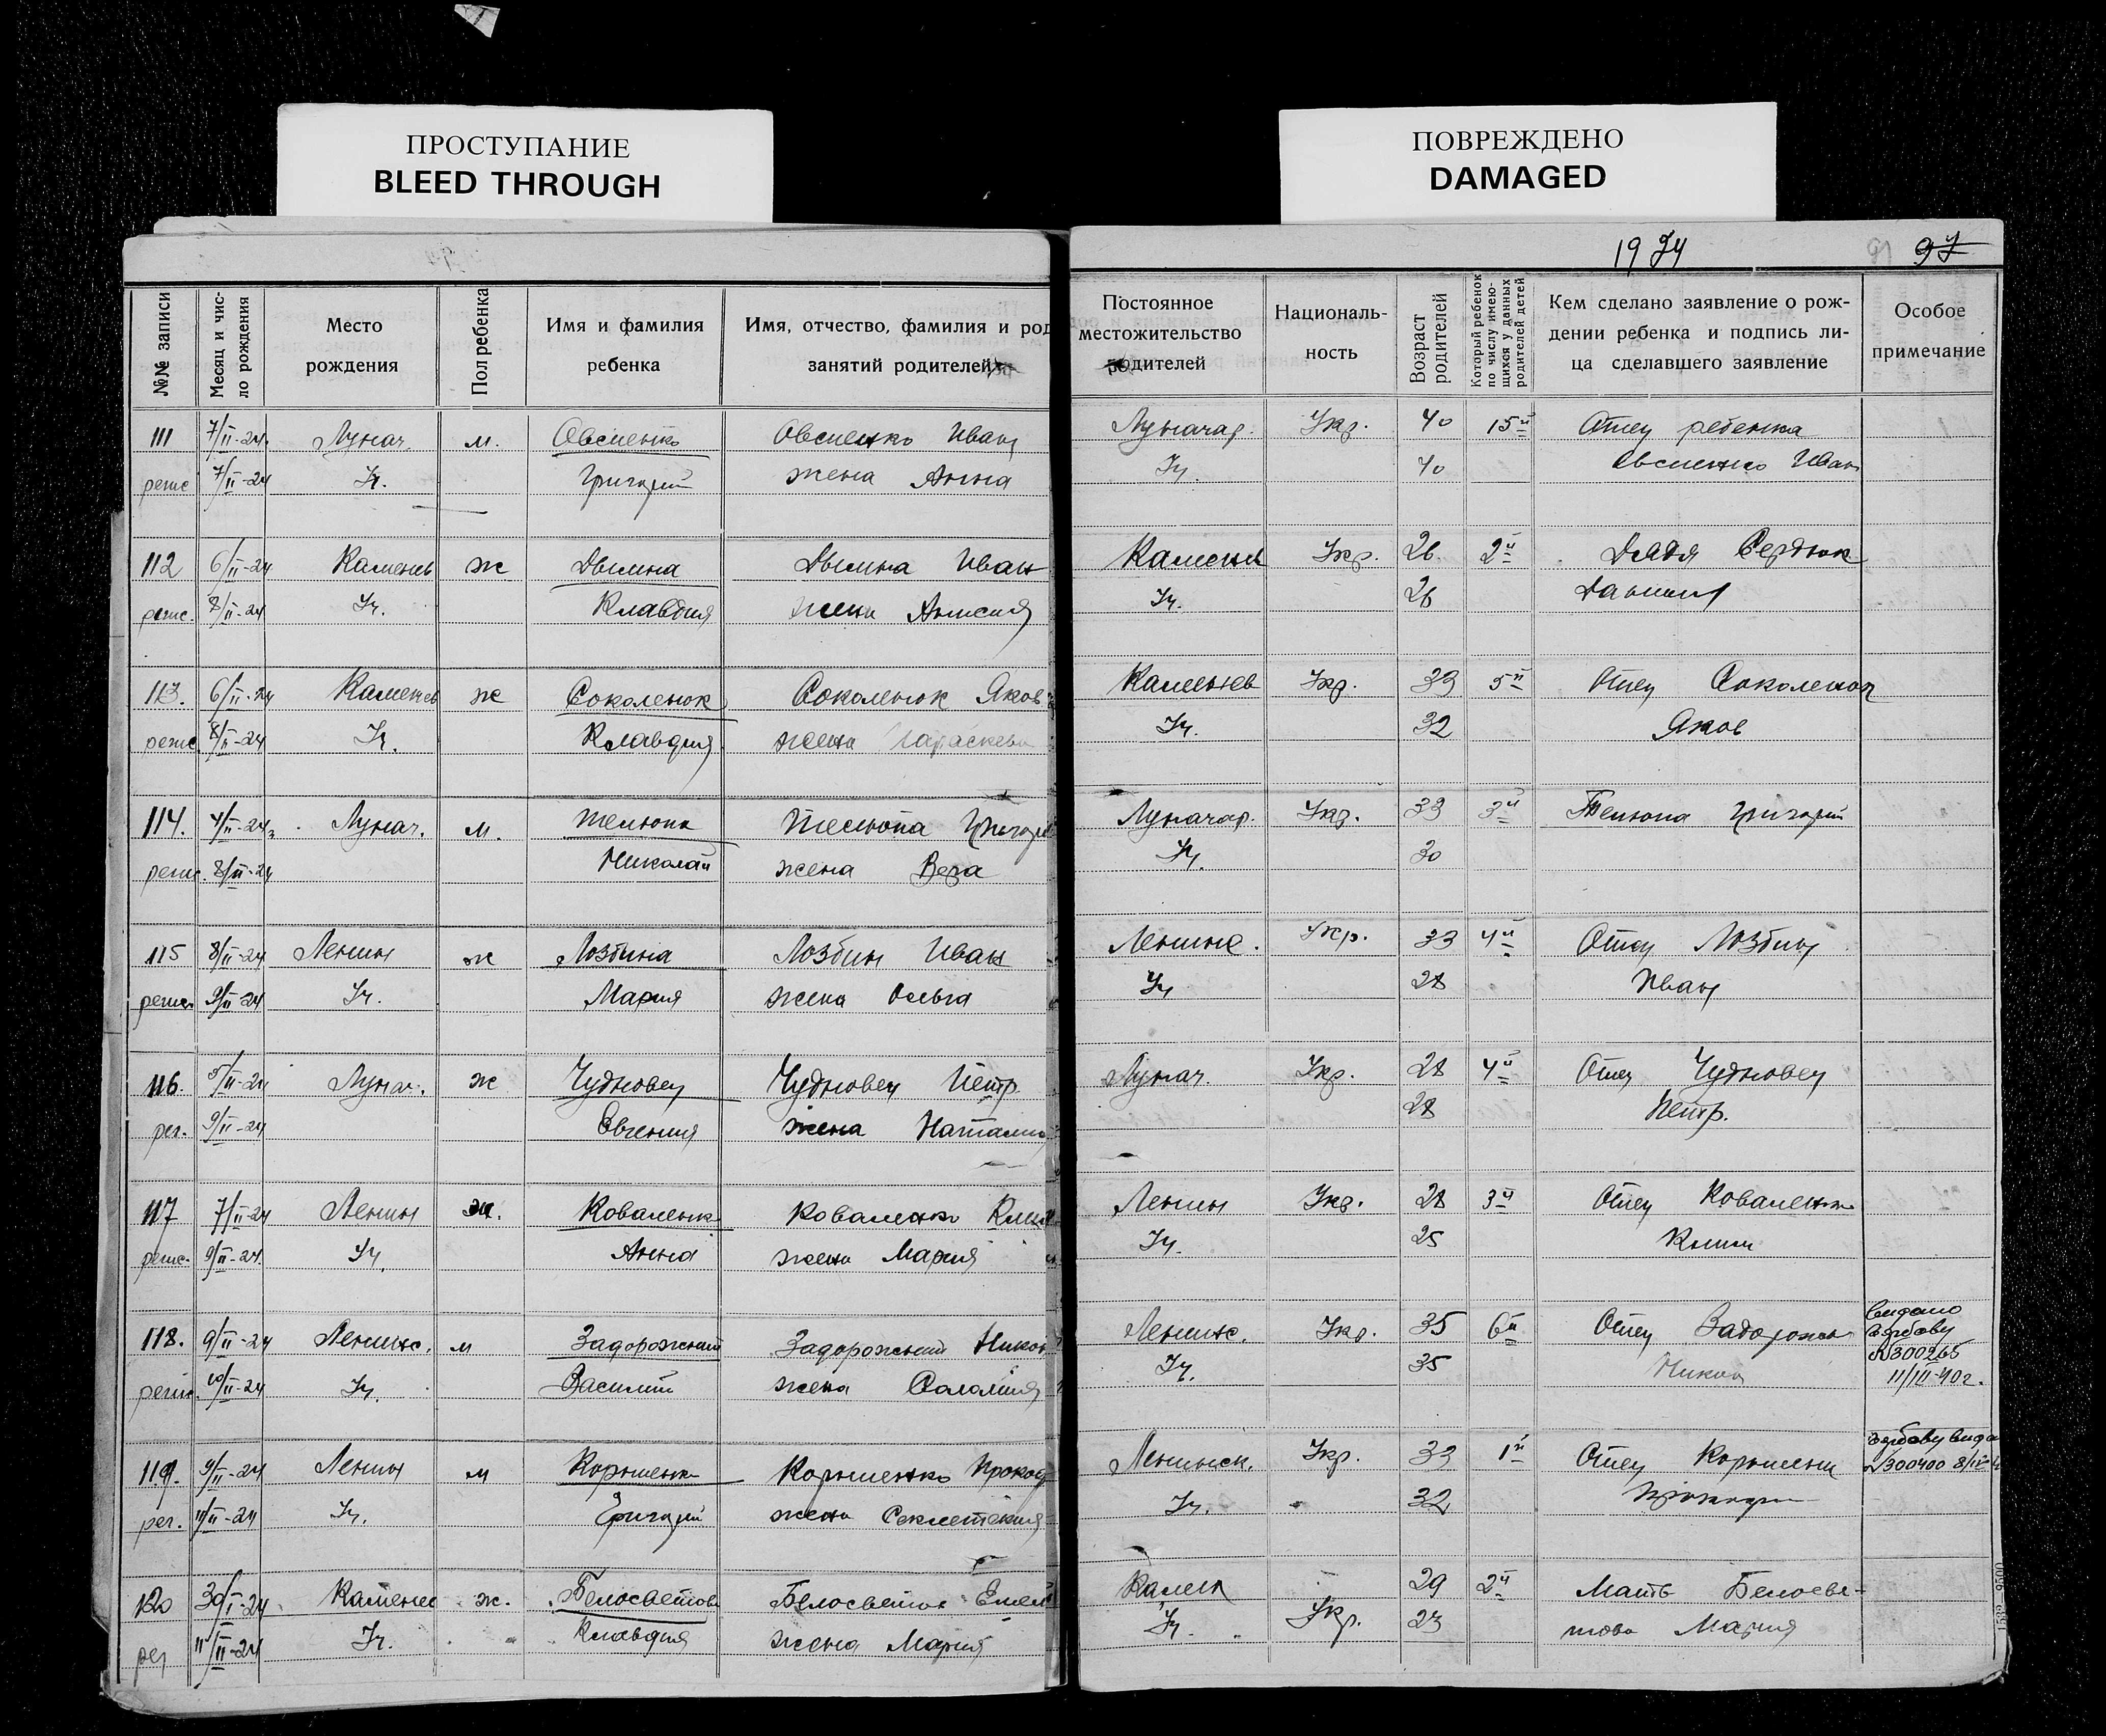 ПРОСТУПАНИЕ
BLEED THROUGH
ПОВРЕЖДЕНО
DAMAGED
№№ записи
Месяц и чис-
ло рождения
Место
рождения
Пол ребенка
Имя и фамилия
ребенка
Имя, отчество, фамилия и род
занятий родителей
111 7/II-24 Лунач. м. Овсиенко Овсиенко Иван
7/II-24 Уч. Григорий жена Анна
112 6/II-24 Каменев ж Двилина Двилина Иван
8/II-24 Уч. Клавдия жена
113. 6/II-24 Каменев ж Соколенюк Соколенюк Яков
8/II-24 Уч. Клавдия жена Параскева
114. 4/II-24 Лунач. м. Телюпа Телюпа
8/II-24 Николай жена Вера
115 8/II-24 Ленин ж Лозбина Лозбин Иван
9/II-24 Уч. Мария жена Ольга
116. 5/II-24 Лунач. ж Чудновец Чудновец Петр
рег. 9/II-24 Евгения жена
117 7/II-24 Ленин ж. Коваленк Коваленко Клим
9/II-24 Уч. Анна жена Мария
118. 9/II-24 Ленинс. м Задорожний Задорожний Никон
10/II-24 Уч. Василий жена Соломия
119. 9/II-24 Ленин м
рег. 11/II-24 Уч. Григорий жена
120 30/I-24 Каменев ж. Белосветова Белосветов
рег 11/II-24 Уч. Клавдия жена Мария
1924 91 97
Постоянное
местожительство
родителей
Националь-
ность
Возраст
родителей
Который ребенок
по числу имею-
щихся у данных
родителей детей
Кем сделано заявление о рож-
дении ребенка и подпись ли-
ца сделавшего заявление
Особое
примечание
Луначар. Укр. 40 15й Отец ребенка
Уч. 40 Овсиенко Иван
Каменев Укр. 26 2й Дядя Сердюк
Уч. 26 Даниил
Каменев Укр. 33 5й Отец Соколенюк
Уч. 32 Яков
Луначар. Укр. 33 3й Телюпа Григорий
Уч. 30
Ленинс. Укр. 33 4й Отец Лозбин
Уч 28 Иван
Лунач. Укр. 28 4й Отец Чудновец
28 Петр.
Ленин Укр. 28 3й Отец Коваленко
Уч. 25 Клим
Ленинс. Укр. 35 6й Отец Задорожн
Уч. 35 Никон
№300265
11/III-40г.
Ленинск. Укр. 33 1й Отец
Уч. 32
№300400
Камен 29 2й Мать Белосве-
Уч. Укр. 23 това Мария